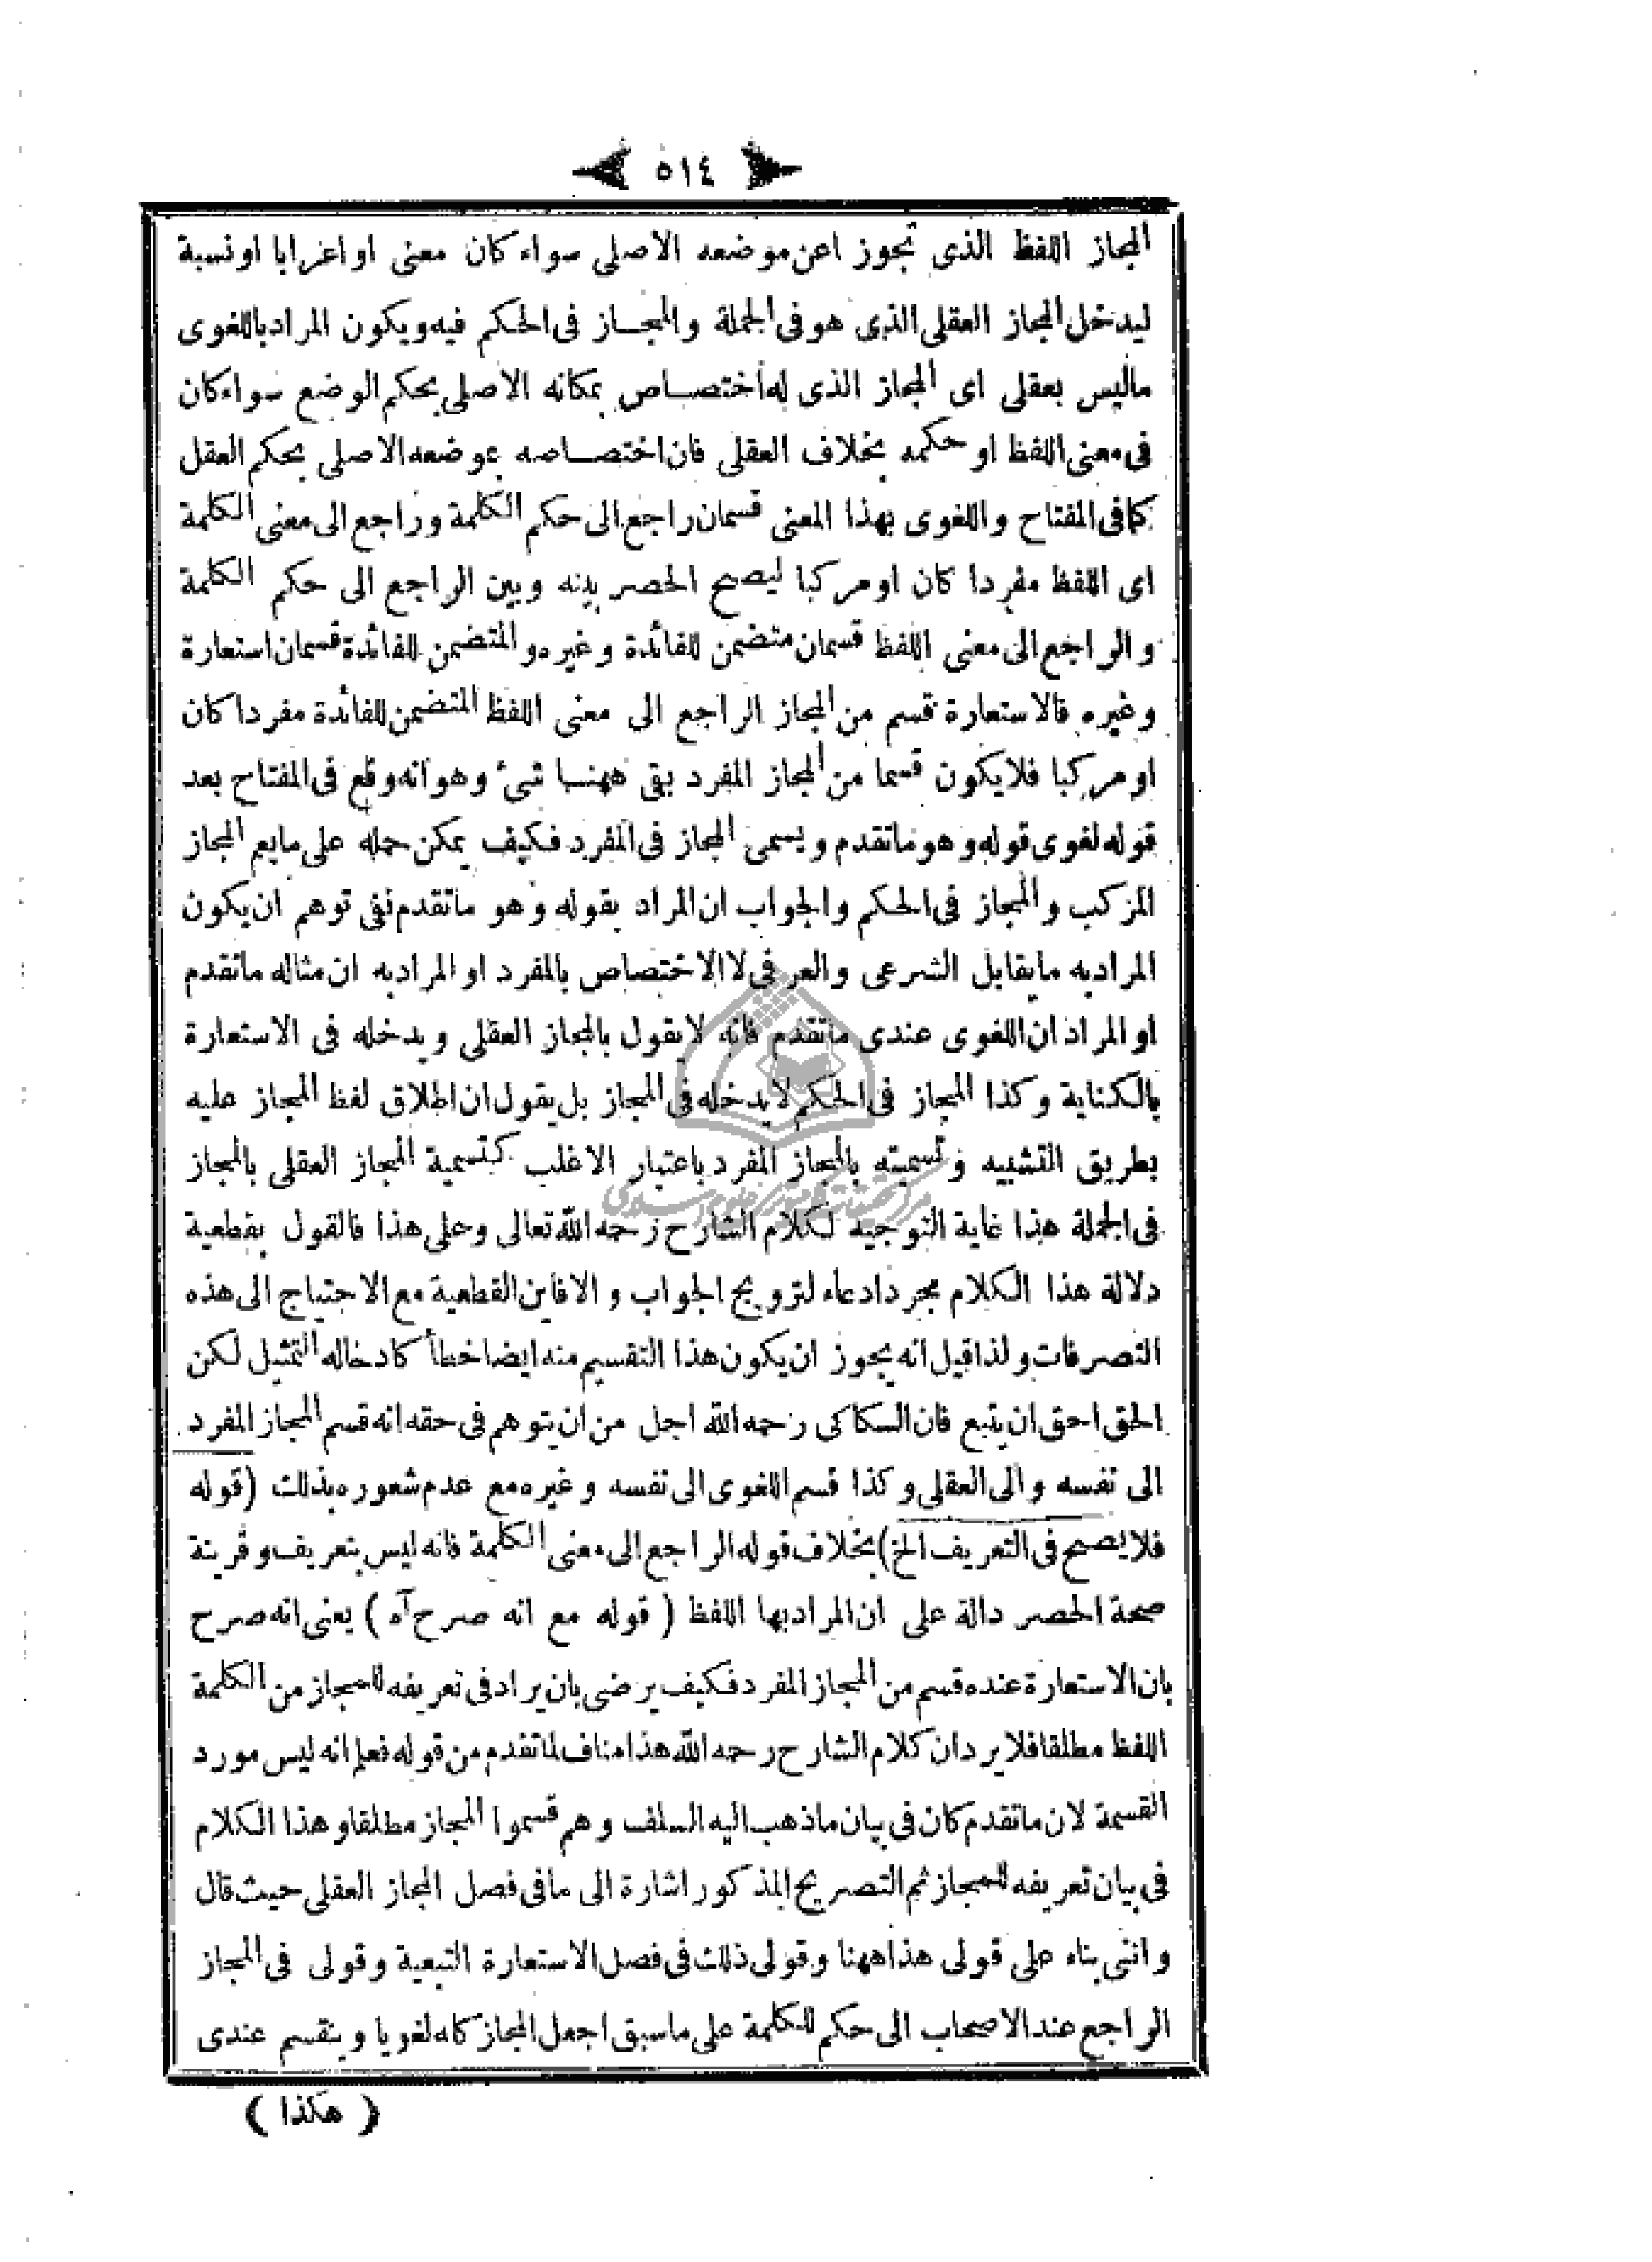 ٥١٤
المجاز اللفظ الذى تجوز اعن موضعه الاصلى سواء كان معنى او اعرابا او نسبة
ليدخل المجاز العقلى الذى هو فى الجملة والمجاز فى الحكم فيه ويكون المراد باللغوى
ماليس بعقلى اى المجاز الذى له اختصاص بمكانه الاصلى بحكم الوضع سواء كان
فى معنى اللفظ او حكمه بخلاف العقلى فان اختصاصه بموضعه الاصلى بحكم العقل
كما فى المفتاح واللغوى بهذا المعنى قسمان راجع الى حكم الكلمة وراجع الى معنى الكلمة
اى اللفظ مفردا كان او مركبا ليصح الحصر بينه وبين الراجع الى حكم الكلمة
والراجع الى معنى اللفظ قسمان متضمن للفائدة وغيره والمتضمن للفائدة قسمان استعارة
وغيره فالاستعارة قسم من المجاز الراجع الى معنى اللفظ المتضمن للفائدة مفردا كان
او مركبا فلايكون قسما من المجاز المفرد بقى ههنا شئ وهو انه وقع فى المفتاح بعد
قوله لغوى قوله وهو ماتقدم ويسمى المجاز فى المفرد فكيف يمكن حمله على مايعم المجاز
المركب والمجاز فى الحكم والجواب ان المراد بقوله وهو ماتقدم نفى توهم ان يكون
المراد به مايقابل الشرعى والعرفى لا الاختصاص بالمفرد او المراد به ان مثاله ماتقدم
او المراد ان اللغوى عندى ماتقدم فانه لايقول بالمجاز العقلى ويدخله فى الاستعارة
بالكناية وكذا المجاز فى الحكم لايدخله فى المجاز بل يقول ان اطلاق لفظ المجاز عليه
بطريق التشبيه وتسميته بالمجاز المفرد باعتبار الاغلب كتسمية المجاز العقلى بالمجاز
فى الجملة هذا غاية التوجيه لكلام الشارح رحمه الله تعالى وعلى هذا فالقول بقطعية
دلالة هذا الكلام مجرد ادعاء لترويج الجواب والا فاين القطعية مع الاحتياج الى هذه
التصرفات ولذا قيل انه يجوز ان يكون هذا التقسيم منه ايضا خطأ كادخاله التمثيل لكن
الحق احق ان يتبع فان السكاكى رحمه الله اجل من ان يتوهم فى حقه انه قسم المجاز المفرد
الى نفسه والى العقلى وكذا قسم اللغوى الى نفسه وغيره مع عدم شعوره بذلك (قوله
فلا يصح فى التعريف الخ) بخلاف قوله الراجع الى معنى الكلمة فانه ليس بتعريف وقرينة
صحة الحصر دالة على ان المراد بها اللفظ ( قوله مع انه صرح آه ) يعنى انه صرح
بان الاستعارة عنده قسم من المجاز المفرد فكيف يرضى بان يراد فى تعريفه للمجاز من الكلمة
اللفظ مطلقا فلا يرد ان كلام الشارح رحمه الله هذا مناف لماتقدم من قوله فعلم انه ليس مورد
القسمة لان ماتقدم كان فى بيان ماذهب اليه السلف وهم قسموا المجاز مطلقا وهذا الكلام
فى بيان تعريفه للمجاز ثم التصريح المذكور اشارة الى مافى فصل المجاز العقلى حيث قال
واننى بناء على قولى هذا ههنا وقولى ذلك فى فصل الاستعارة التبعية وقولى فى المجاز
الراجع عند الاصحاب الى حكم للكلمة على ماسبق اجعل المجاز كله لغويا وينقسم عندى
( هكذا )